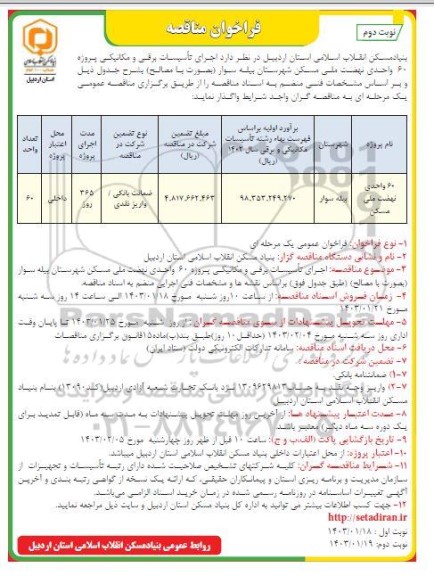 فراخوان مناقصه
نوبت دوم
بنیاد مسکن انقلاب اسلامی
استان اردبیل
بنیادمسکن انقلاب اسلامی استان اردبیل در نظر دارد اجرای تأسیسات برقی و مکانیکی پروژه
۶۰ واحدی نهضت ملی مسکن شهرستان بیله سوار (بصورت با مصالح) بشرح جدول ذیل
و بر اساس مشخصات فنی منضم به اسناد مناقصه را از طریق برگزاری مناقصه عمومی
یک مرحله ای به مناقصه گران واجد شرایط واگذار نماید:
نام پروژه
شهرستان
برآورد اولیه براساس فهرست بهاء رشته تأسیسات مکانیکی و برقی سال ۱۴۰۲ (ریال)
مبلغ تضمین شرکت در مناقصه (ریال)
نوع تضمین شرکت در مناقصه
مدت اجرای پروژه
محل اعتبار پروژه
تعداد واحد
۶۰ واحدی نهضت ملی مسکن
بیله سوار
۹۸,۳۵۳,۲۴۹,۲۷۰
۴,۸۱۷,۶۶۲,۴۶۳
ضمانت بانکی / واریز نقدی
۳۶۵ روز
داخلی
۶۰
۱- نوع فراخوان: فراخوان عمومی یک مرحله ای
۲- نام و نشانی دستگاه مناقصه گزار: بنیاد مسکن انقلاب اسلامی استان اردبیل
۳- موضوع مناقصه: اجرای تأسیسات برقی و مکانیکی پروژه ۶۰ واحدی نهضت ملی مسکن شهرستان بیله سوار
(بصورت با مصالح) (طبق جدول فوق) براساس نقشه ها و مشخصات فنی اجرایی منضم به اسناد مناقصه.
۴- زمان فروش اسناد مناقصه: از ساعت ۱۰ روز شنبه مورخ ۱۴۰۳/۰۱/۱۸ الی ساعت ۱۴ روز سه شنبه
مورخ ۱۴۰۳/۰۱/۲۱
۵- مهلت تحویل پیشنهادات از سوی مناقصه گران: از روز شنبه مورخ ۱۴۰۳/۰۱/۲۵ تا پایان وقت
اداری روز سه شنبه مورخ ۱۴۰۳/۰۲/۰۴ (حداقل ۱۰ روز) طبق بند(ب)ماده۱۵قانون برگزاری مناقصات
۶- محل دریافت اسناد مناقصه: سامانه تدارکات الکترونیکی دولت (ستاد ایران)
۷- تضمین شرکت در مناقصه:
۷-۱) ضمانتنامه بانکی.
۷-۲) واریز وجه نقد به حساب ۱۳۰۹۶۲۹۸۱۳ نزد بانک تجارت شعبه آزادی اردبیل(کد ۱۳۰۹۰) بنام بنیاد
مسکن انقلاب اسلامی استان اردبیل.
۸- مدت اعتبار پیشنهاد ها: از آخرین روز مهلت تحویل پیشنهادات به مدت سه ماه (قابل تمدید برای
یک دوره سه ماه دیگر) معتبر باشد.
۹- تاریخ بازگشایی پاکت (الف،ب و ج): ساعت ۱۰ قبل از ظهر روز چهارشنبه مورخ ۱۴۰۳/۰۲/۰۵
۱۰- اعتبار پروژه: از محل اعتبارات داخلی بنیاد مسکن انقلاب اسلامی استان اردبیل میباشد.
۱۱- شرایط مناقصه گران: کلیه شرکتهای تشخیص صلاحیت شده دارای رتبه تأسیسات و تجهیزات از
سازمان مدیریت و برنامه ریزی استان و پیمانکاران حقیقی، که ارائه یک نسخه از گواهی رتبه بندی و آخرین
آگهی تغییرات اساسنامه در روزنامه رسمی شده در زمان خرید اسناد الزامی میباشد.
۱۲- جهت کسب اطلاعات بیشتر می توانید به اداره کل بنیاد مسکن استان اردبیل و سایت ذیل مراجعه نمایید.
http://setadiran.ir
نوبت اول : ۱۴۰۳/۰۱/۱۸
نوبت دوم: ۱۴۰۳/۰۱/۱۹
روابط عمومی بنیادمسکن انقلاب اسلامی استان اردبیل
ParsNamadData
۰۲۱-۸۸۳۴۹۶۷۰